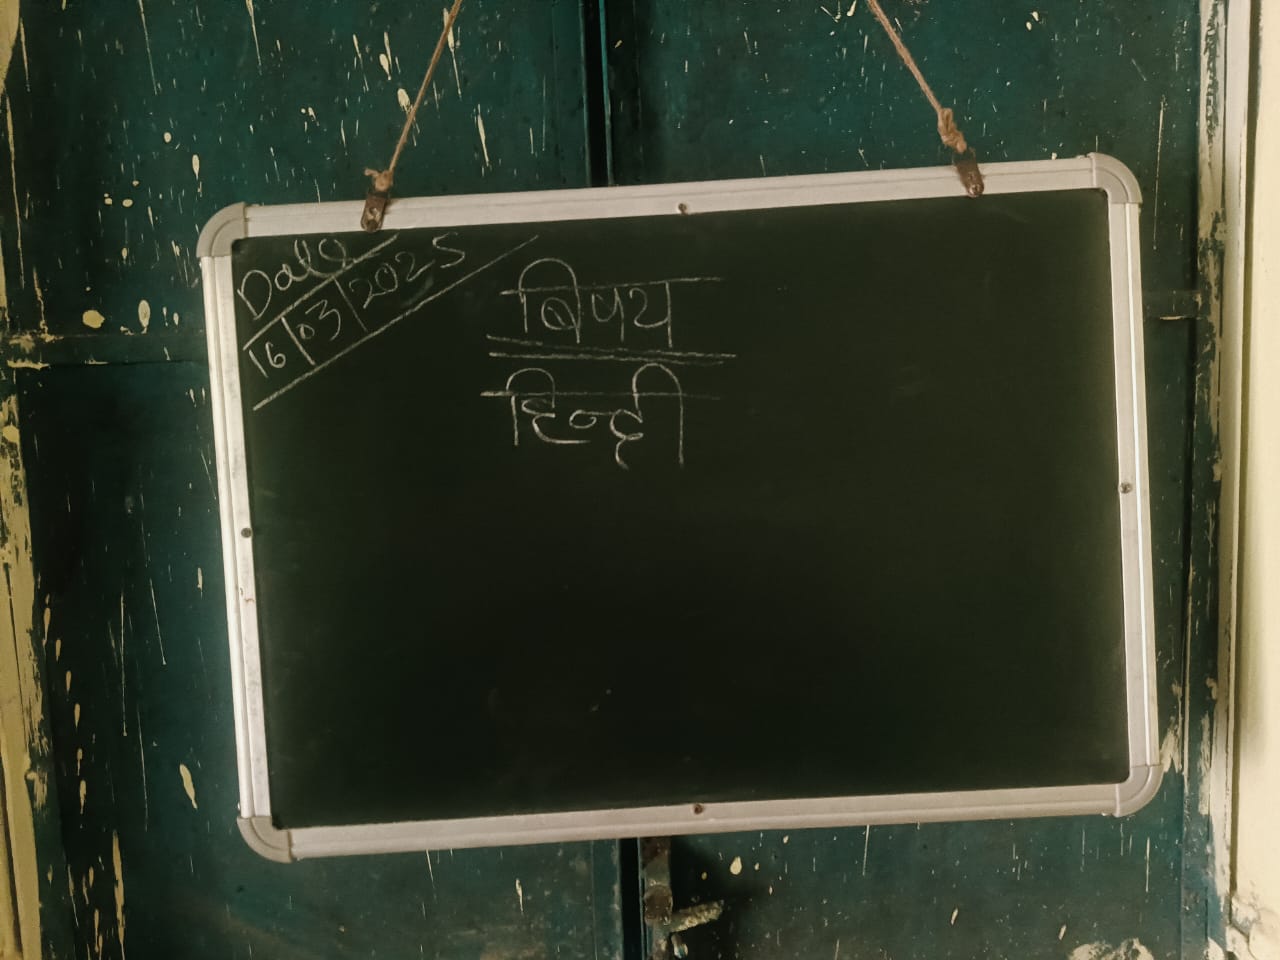 Date
16/03/2025
बिषय
हिन्दी